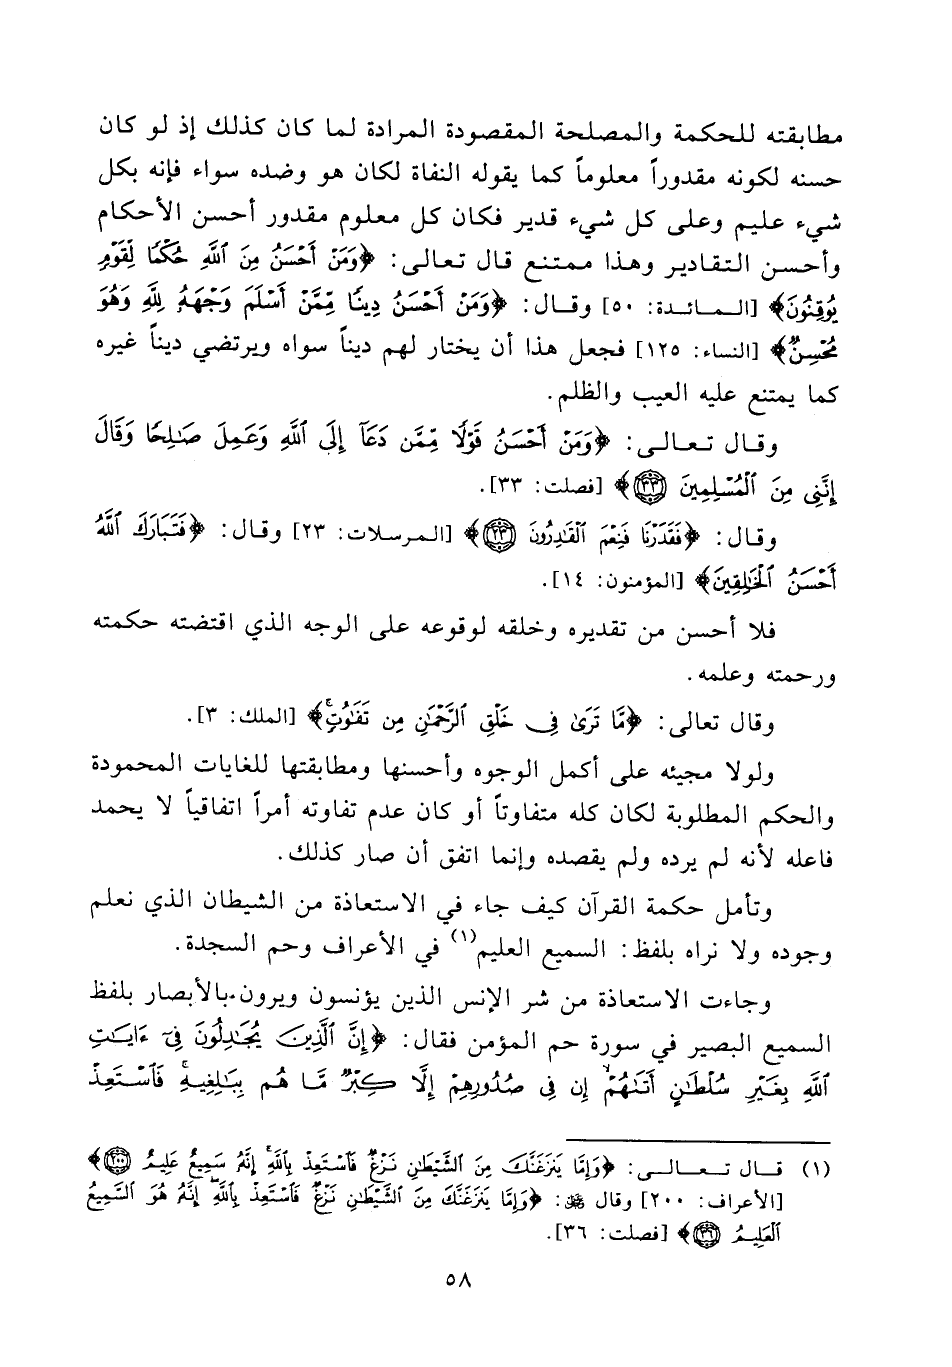 مطابقته للحكمة والمصلحة المقصودة المرادة لما كان كذلك إذ لو كان
حسنه لكونه مقدوراً معلوماً كما يقوله النفاة لكان هو وضده سواء فإنه بكل
شيء عليم وعلى كل شيء قدير فكان كل معلوم مقدور أحسن الأحكام
وأحسن التقادير وهذا ممتنع قال تعالى: ﴿وَمَنْ أَحْسَنُ مِنَ ٱللَّهِ حُكْمًا لِّقَوْمٍ
يُوقِنُونَ﴾ [المائدة: ٥٠] وقال: ﴿وَمَنْ أَحْسَنُ دِينًا مِّمَّنْ أَسْلَمَ وَجْهَهُۥ لِلَّهِ وَهُوَ
مُحْسِنٌ﴾ [النساء: ١٢٥] فجعل هذا أن يختار لهم ديناً سواه ويرتضي ديناً غيره
كما يمتنع عليه العيب والظلم.
وقال تعالى: ﴿وَمَنْ أَحْسَنُ قَوْلًا مِّمَّن دَعَآ إِلَى ٱللَّهِ وَعَمِلَ صَٰلِحًا وَقَالَ
إِنَّنِى مِنَ ٱلْمُسْلِمِينَ ٣٣﴾ [فصلت: ٣٣].
وقال: ﴿فَقَدَرْنَا فَنِعْمَ ٱلْقَٰدِرُونَ ٢٣﴾ [المرسلات: ٢٣] وقال: ﴿فَتَبَارَكَ ٱللَّهُ
أَحْسَنُ ٱلْخَٰلِقِينَ﴾ [المؤمنون: ١٤].
فلا أحسن من تقديره وخلقه لوقوعه على الوجه الذي اقتضته حكمته
ورحمته وعلمه.
وقال تعالى: ﴿مَّا تَرَىٰ فِى خَلْقِ ٱلرَّحْمَٰنِ مِن تَفَٰوُتٍۖ﴾ [الملك: ٣].
ولولا مجيئه على أكمل الوجوه وأحسنها ومطابقتها للغايات المحمودة
والحكم المطلوبة لكان كله متفاوتاً أو كان عدم تفاوته أمراً اتفاقياً لا يحمد
فاعله لأنه لم يرده ولم يقصده وإنما اتفق أن صار كذلك.
وتأمل حكمة القرآن كيف جاء في الاستعاذة من الشيطان الذي نعلم
وجوده ولا نراه بلفظ: السميع العليم(١) في الأعراف وحم السجدة.
وجاءت الاستعاذة من شر الإنس الذين يؤنسون ويرون بالأبصار بلفظ
السميع البصير في سورة حم المؤمن فقال: ﴿إِنَّ ٱلَّذِينَ يُجَٰدِلُونَ فِىٓ ءَايَٰتِ
ٱللَّهِ بِغَيْرِ سُلْطَٰنٍ أَتَىٰهُمْۙ إِن فِى صُدُورِهِمْ إِلَّا كِبْرٌ مَّا هُم بِبَٰلِغِيهِۚ فَٱسْتَعِذْ
(١) قال تعالى: ﴿وَإِمَّا يَنزَغَنَّكَ مِنَ ٱلشَّيْطَٰنِ نَزْغٌ فَٱسْتَعِذْ بِٱللَّهِۚ إِنَّهُۥ سَمِيعٌ عَلِيمٌ ٢٠٠﴾
[الأعراف: ٢٠٠] وقال ﷺ: ﴿وَإِمَّا يَنزَغَنَّكَ مِنَ ٱلشَّيْطَٰنِ نَزْغٌ فَٱسْتَعِذْ بِٱللَّهِۖ إِنَّهُۥ هُوَ ٱلسَّمِيعُ
ٱلْعَلِيمُ ٣٦﴾ [فصلت: ٣٦].
٥٨